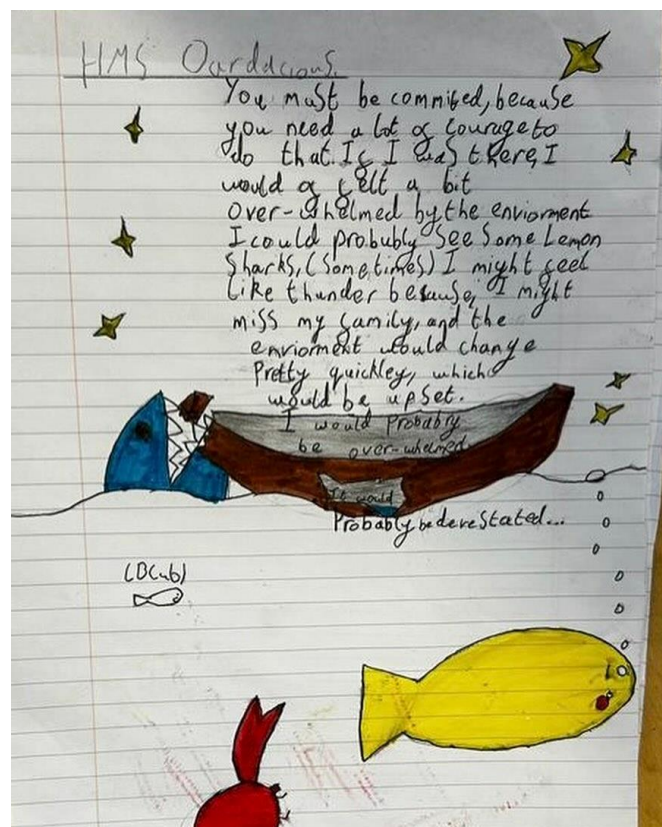 HMS Oardacious.
You must be commited, because
you need a lot of courage to
do that. If I was there, I
would of felt a bit
over-whelmed by the enviorment
I could probubly see some Lemon
Sharks, (sometimes) I might feel
like thunder because, I might
miss my family, and the
enviorment would change
Pretty quickley, which
would be upset.
I would Probably
be over-whelmed
It would
Probably be devestated...